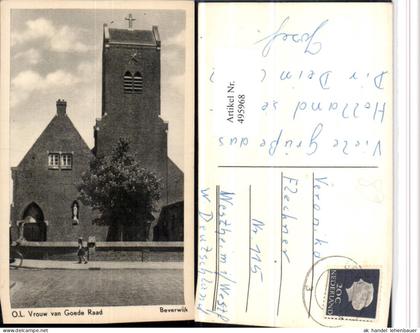 O.L. Vrouw van Goede Raad Beverwijk
Artikel Nr.
495968
Viele Grüße aus
Holland se
Dir Dein
Josef
Veronika
Flechsner
Nr 115
Westheim/Westf
W Deutschland
NEDERLAND
20C
© ak handel lehenbauer